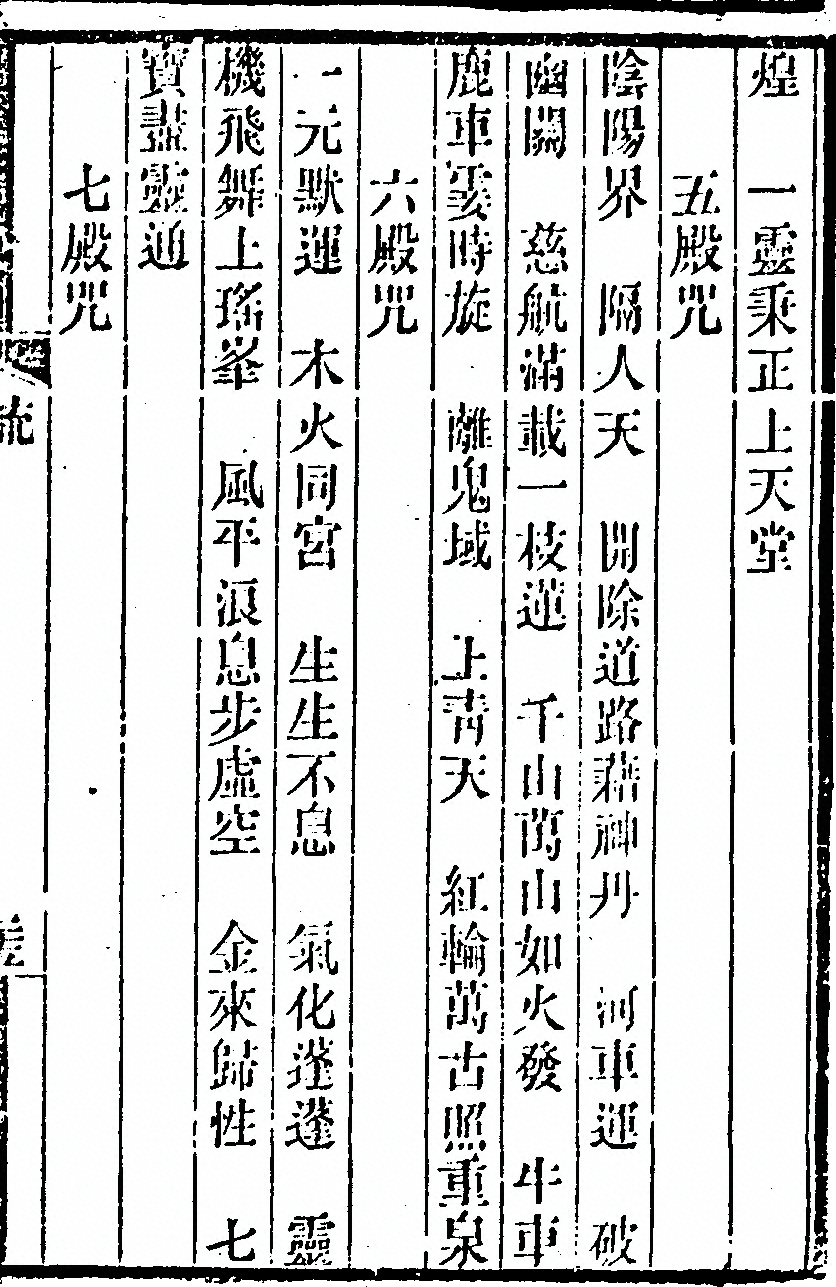 煌　一靈秉正上天堂
五殿咒
陰陽界　隔人天　開除道路藉神丹　河車運　破
幽關　慈航滿載一枝蓮　千山萬山如火發　牛車
鹿車霎時旋　離鬼域　上青天　紅輪萬古照重泉
六殿咒
一元默運　木火同宮　生生不息　氣化蓬蓬　靈
機飛舞上瑤峯　風平浪息步虛空　金來歸性　七
寶盡靈通
七殿咒